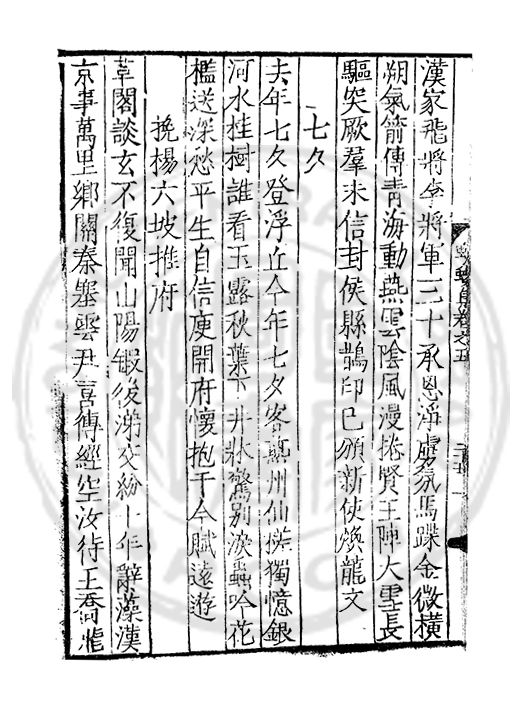 漢家飛將李將軍三十承恩淨虜氛馬蹀金微橫
朔氣箭傳青海動燕雲陰風漫捲賢王陣大雪長
驅突厥羣未信封侯縣鵲印已頒新使煥龍文
七夕
去年七夕登浮丘今年七夕客甌州仙槎獨憶銀
河水桂樹誰看玉露秋葉下井牀驚別淚蟲吟花
檻送深愁平生自信庾開府懷抱于今賦遠遊
挽楊六坡推府
草閣談玄不復聞山陽鍜後游交紛十年辭藻漢
京事萬里鄉關秦塞雲尹喜傳經空汝待王喬
集卷之五